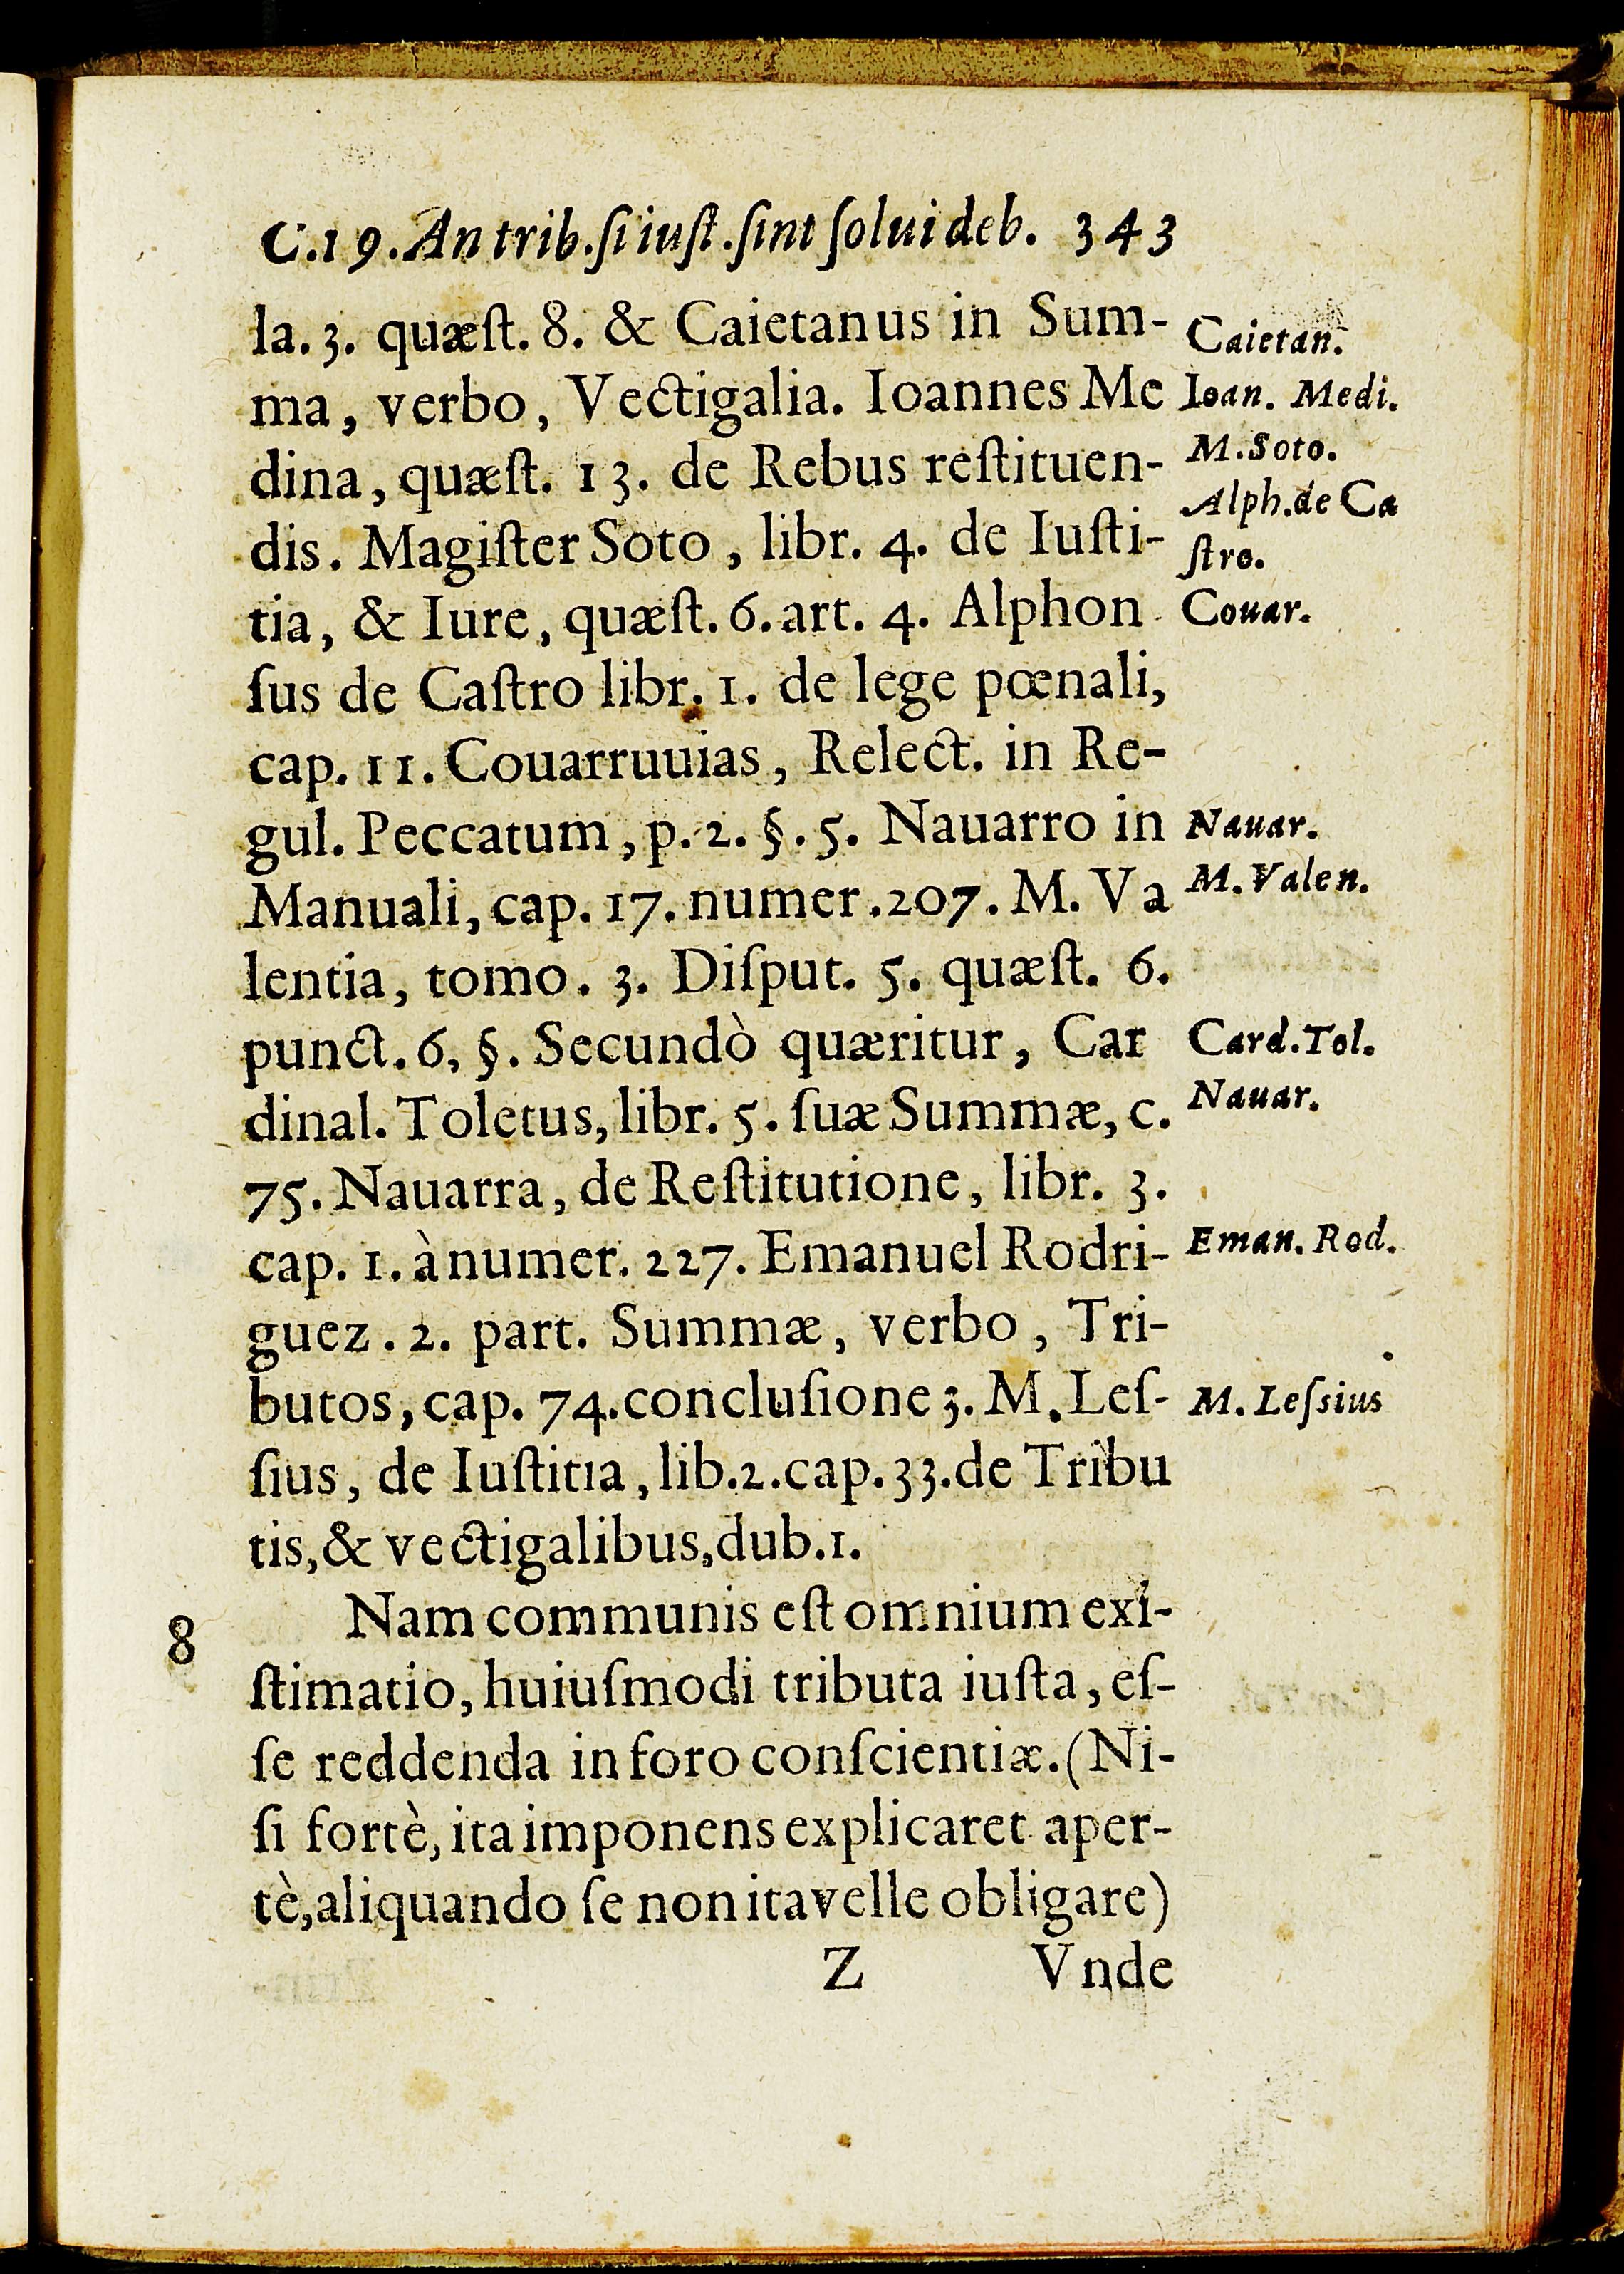 C.19. An trib. ſi iuſt. ſint ſolui deb. 343
la. 3. quæſt. 8. & Caietanus in Sum-
ma, verbo, Vectigalia. Ioannes Me
dina, quæſt. 13. de Rebus reſtituen-
dis. Magiſter Soto, libr. 4. de Iuſti-
tia, & Iure, quæſt. 6. art. 4. Alphon
ſus de Caſtro libr. 1. de lege pœnali,
cap. 11. Couarruuias, Relect. in Re-
gul. Peccatum, p. 2. §. 5. Nauarro in
Manuali, cap. 17. numer. 207. M. Va
lentia, tomo. 3. Diſput. 5. quæſt. 6.
punct. 6, §. Secundò quæritur, Car
dinal. Toletus, libr. 5. ſuæ Summæ, c.
75. Nauarra, de Reſtitutione, libr. 3.
cap. 1. à numer. 227. Emanuel Rodri-
guez. 2. part. Summæ, verbo, Tri-
butos, cap. 74. concluſione 3. M. Leſ-
ſius, de Iuſtitia, lib. 2. cap. 33. de Tribu
tis, & vectigalibus, dub. 1.
8
Nam communis eſt omnium exi-
ſtimatio, huiuſmodi tributa iuſta, eſ-
ſe reddenda in foro conſcientiæ. (Ni-
ſi fortè, ita imponens explicaret aper-
tè, aliquando ſe non ita velle obligare)
Z Vnde
Caietan.
Ioan. Medi.
M. Soto.
Alph. de Ca
ſtro.
Couar.
Nauar.
M. Valen.
Card. Tol.
Nauar.
Eman. Rod.
M. Leſsius